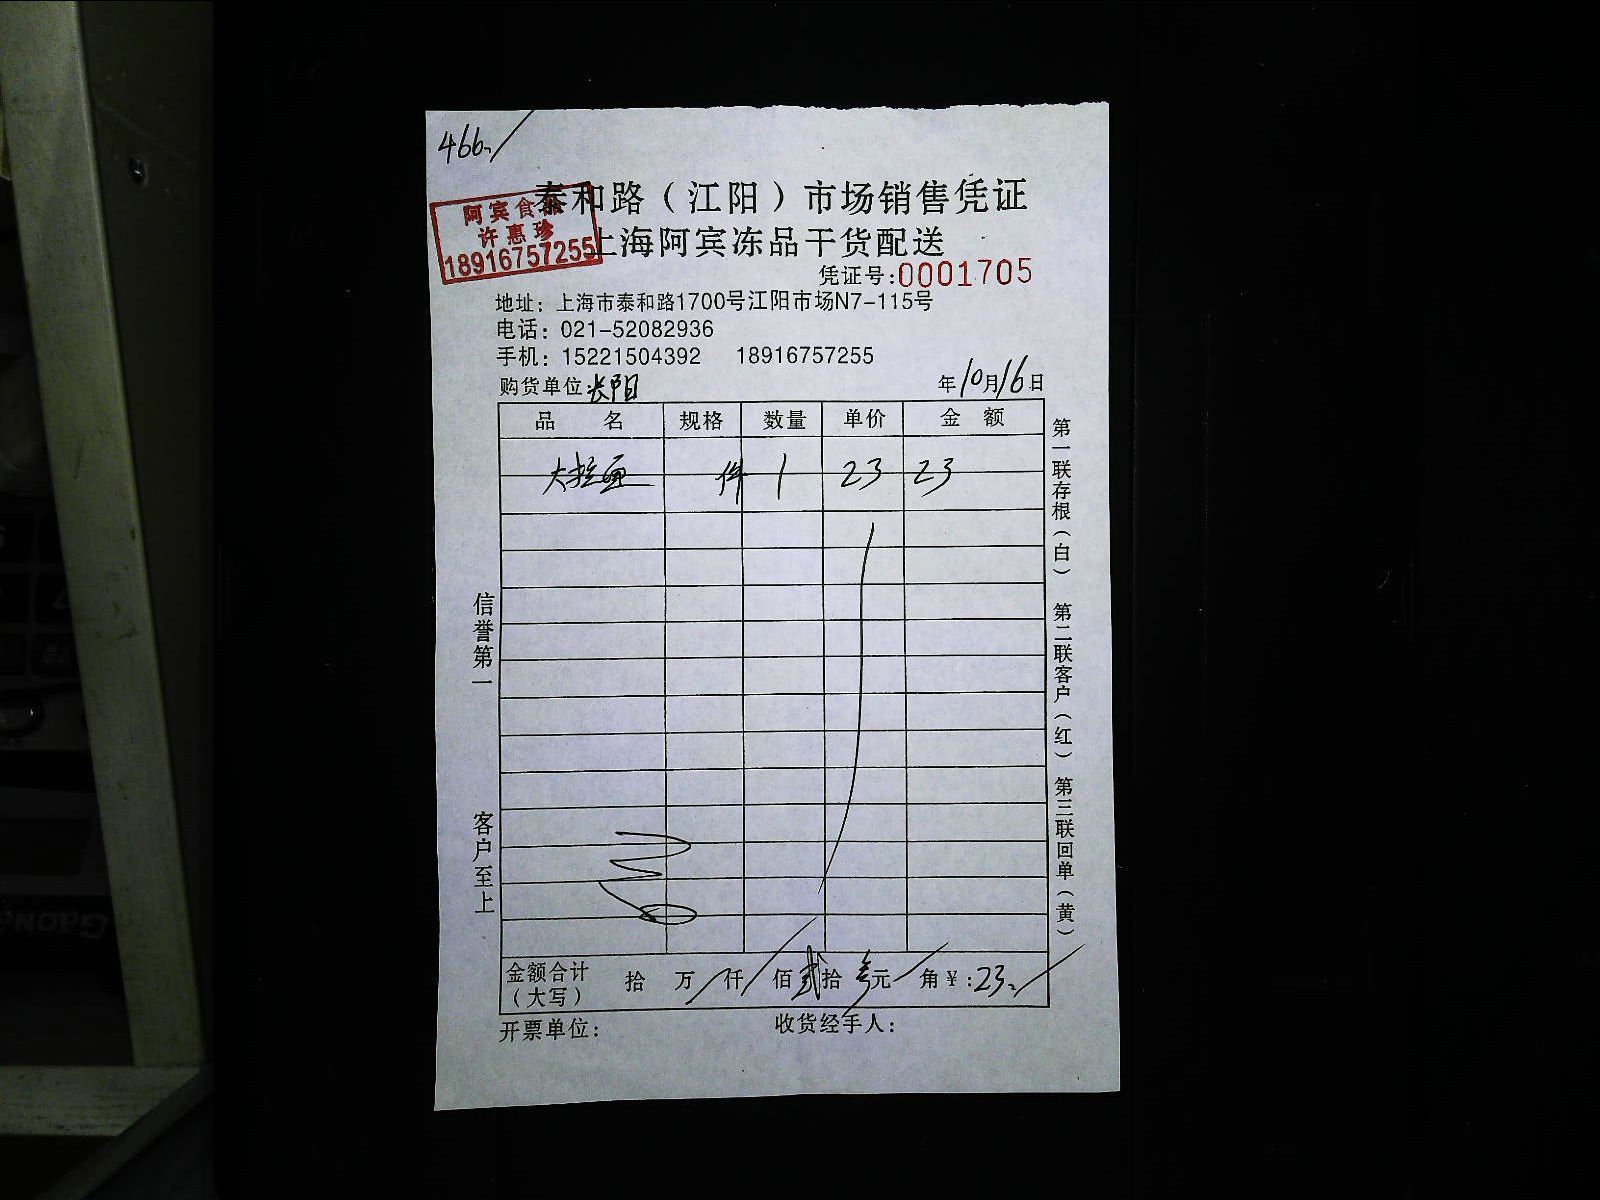 466
泰和路（江阳）市场销售凭证
阿宾食品
许惠珍
18916757255
上海阿宾冻品干货配送
凭证号:0001705
地址：上海市泰和路1700号江阳市场N7-115号
电话：021-52082936
手机：15221504392 18916757255
购货单位:长阳 年10月16日
品名 规格 数量 单价 金额
大拉面 件 1 23 23
信誉第一
客户至上
第一联存根（白）
第二联客户（红）
第三联回单（黄）
金额合计（大写） 拾 万 仟 佰 贰拾叁元 角 ¥:23
开票单位： 收货经手人：